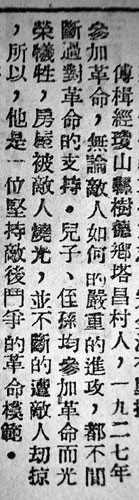 傅相經瓊山縣樹德鄉塔昌村人，一九二七年
參加革命，無論敵人如何的嚴重的進攻，都不間
斷過對革命的支持。兒子、侄孫均參加革命而光
榮犧牲，房屋被敵人燒光，並不斷的遭敵人刧掠
，所以，他是一位堅持敵後鬥爭的革命模範。